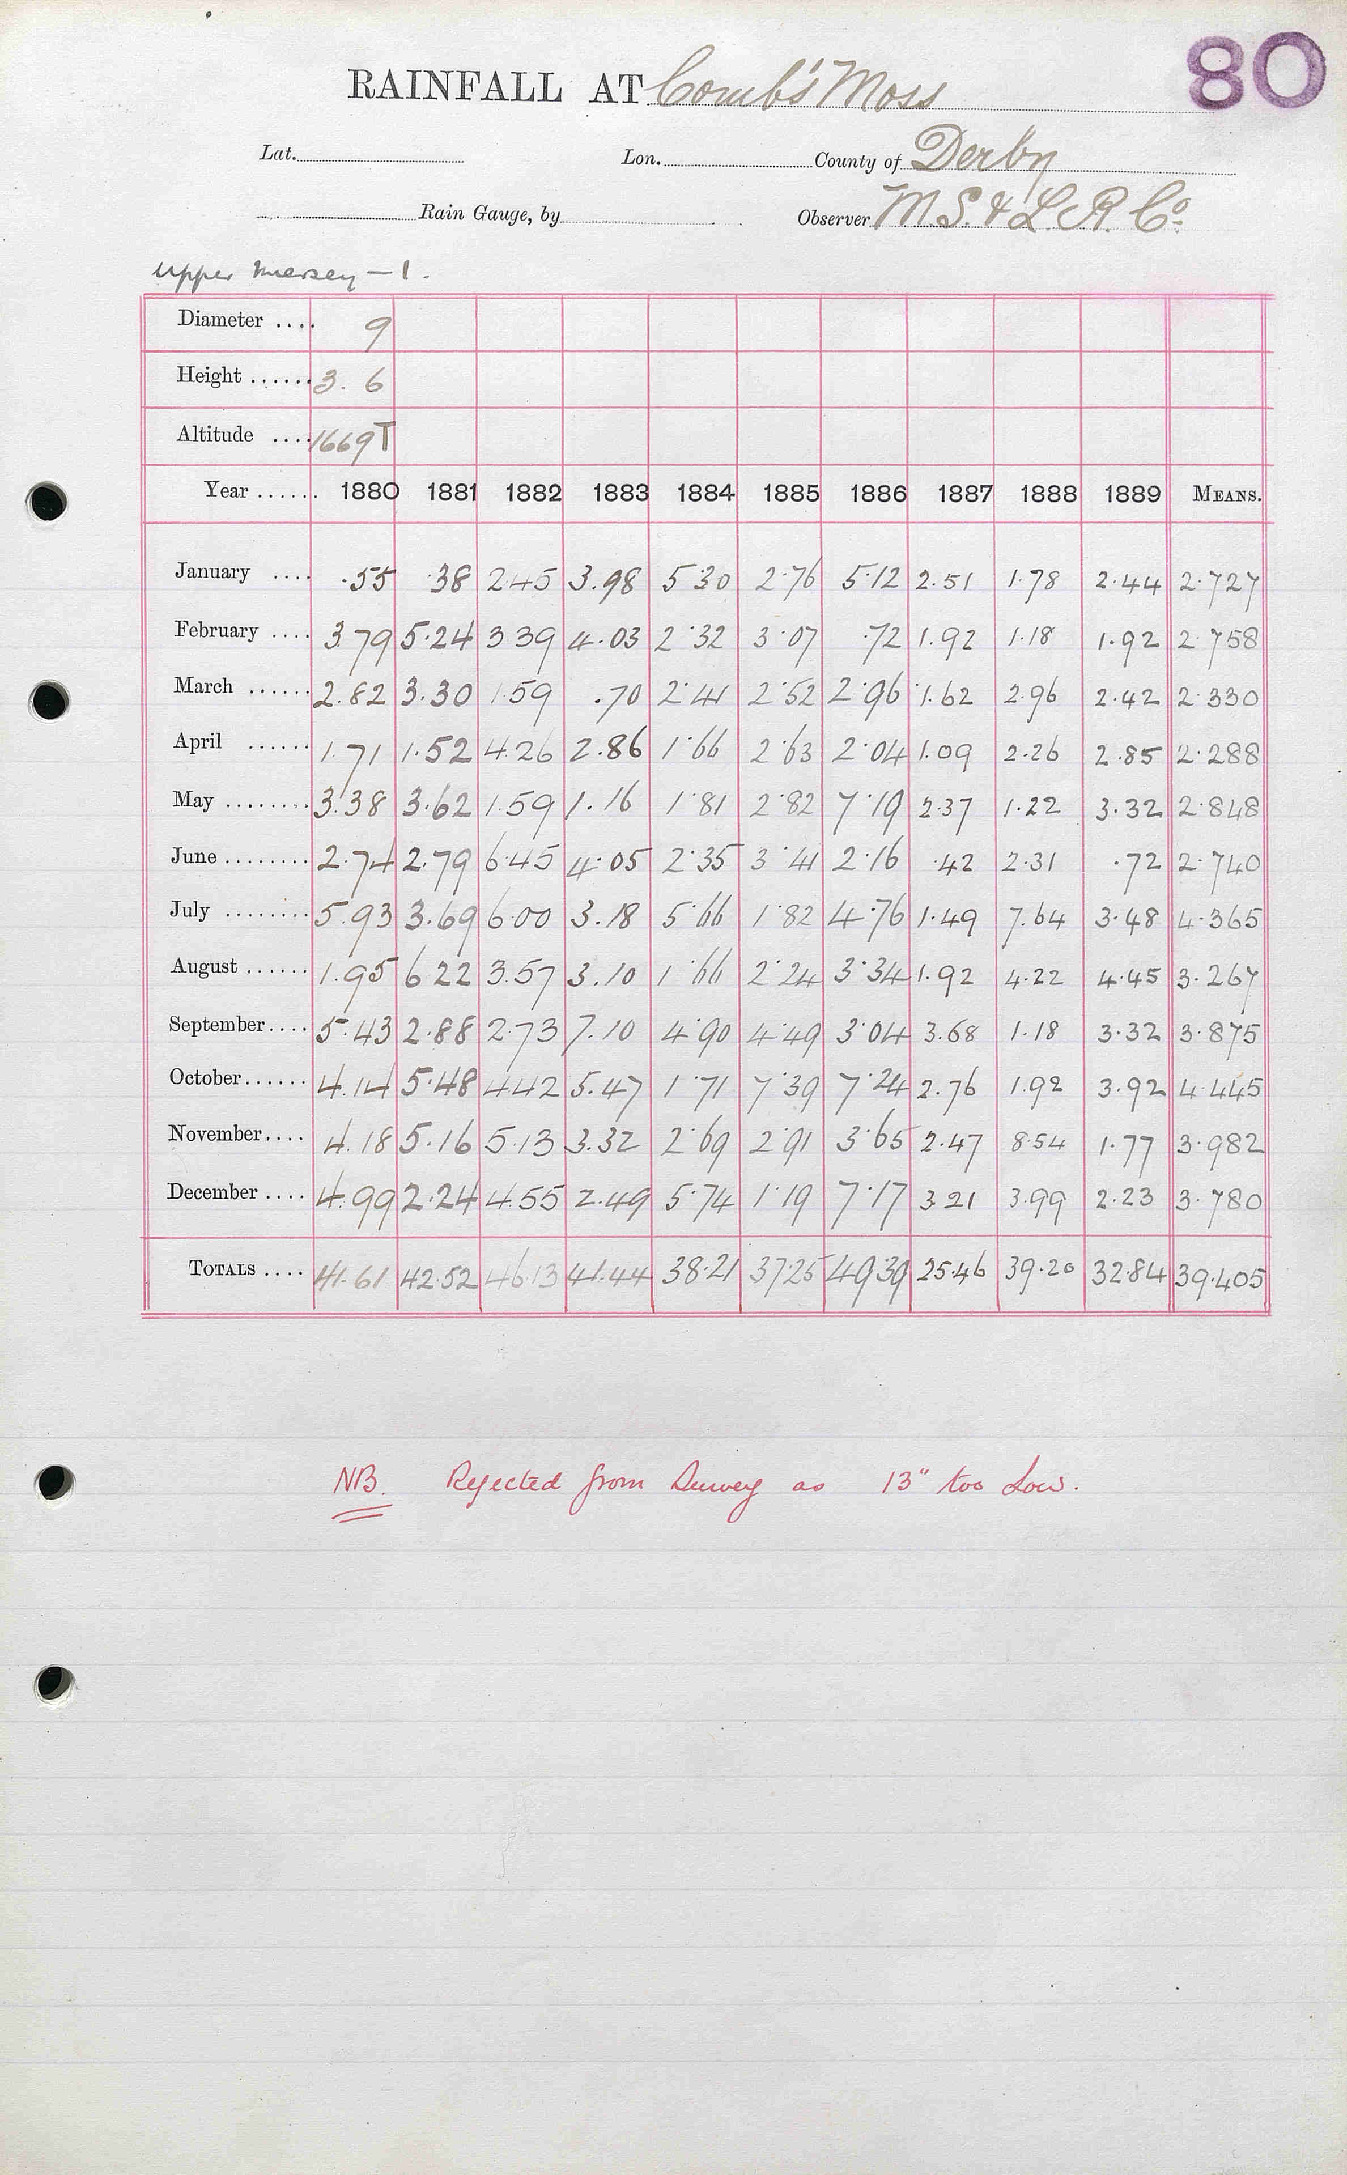 80
RAINFALL AT Comb's Moss
Lat. Lon. County of Derby
Rain Gauge, by Observer M.S. & L.R. Co.
Upper Mersey — 1.
Diameter .... 9
Height ...... 3. 6
Altitude .... 1669T
Year ...... 1880 1881 1882 1883 1884 1885 1886 1887 1888 1889 MEANS.
January .... .55 .38 2.45 3.98 5.30 2.76 5.12 2.51 1.78 2.44 2.727
February .... 3.79 5.24 3.39 4.03 2.32 3.07 .72 1.92 1.18 1.92 2.758
March ...... 2.82 3.30 1.59 .70 2.41 2.52 2.96 1.62 2.96 2.42 2.330
April ...... 1.71 1.52 4.26 2.86 1.66 2.63 2.04 1.09 2.26 2.85 2.288
May ........ 3.38 3.62 1.59 1.16 1.81 2.82 7.19 2.37 1.22 3.32 2.848
June ........ 2.74 2.79 6.45 4.05 2.35 3.41 2.16 .42 2.31 .72 2.740
July ........ 5.93 3.69 6.00 3.18 5.66 1.82 4.76 1.49 7.64 3.48 4.365
August ...... 1.95 6.22 3.57 3.10 1.66 2.24 3.34 1.92 4.22 4.45 3.267
September.... 5.43 2.88 2.73 7.10 4.90 4.49 3.04 3.68 1.18 3.32 3.875
October...... 4.14 5.48 4.42 5.47 1.71 7.39 7.24 2.76 1.92 3.92 4.445
November.... 4.18 5.16 5.13 3.32 2.69 2.91 3.65 2.47 8.54 1.77 3.982
December .... 4.99 2.24 4.55 2.49 5.74 1.19 7.17 3.21 3.99 2.23 3.780
TOTALS .... 41.61 42.52 46.13 41.44 38.21 37.25 49.39 25.46 39.20 32.84 39.405
NB. Rejected from Survey as 13" too low.